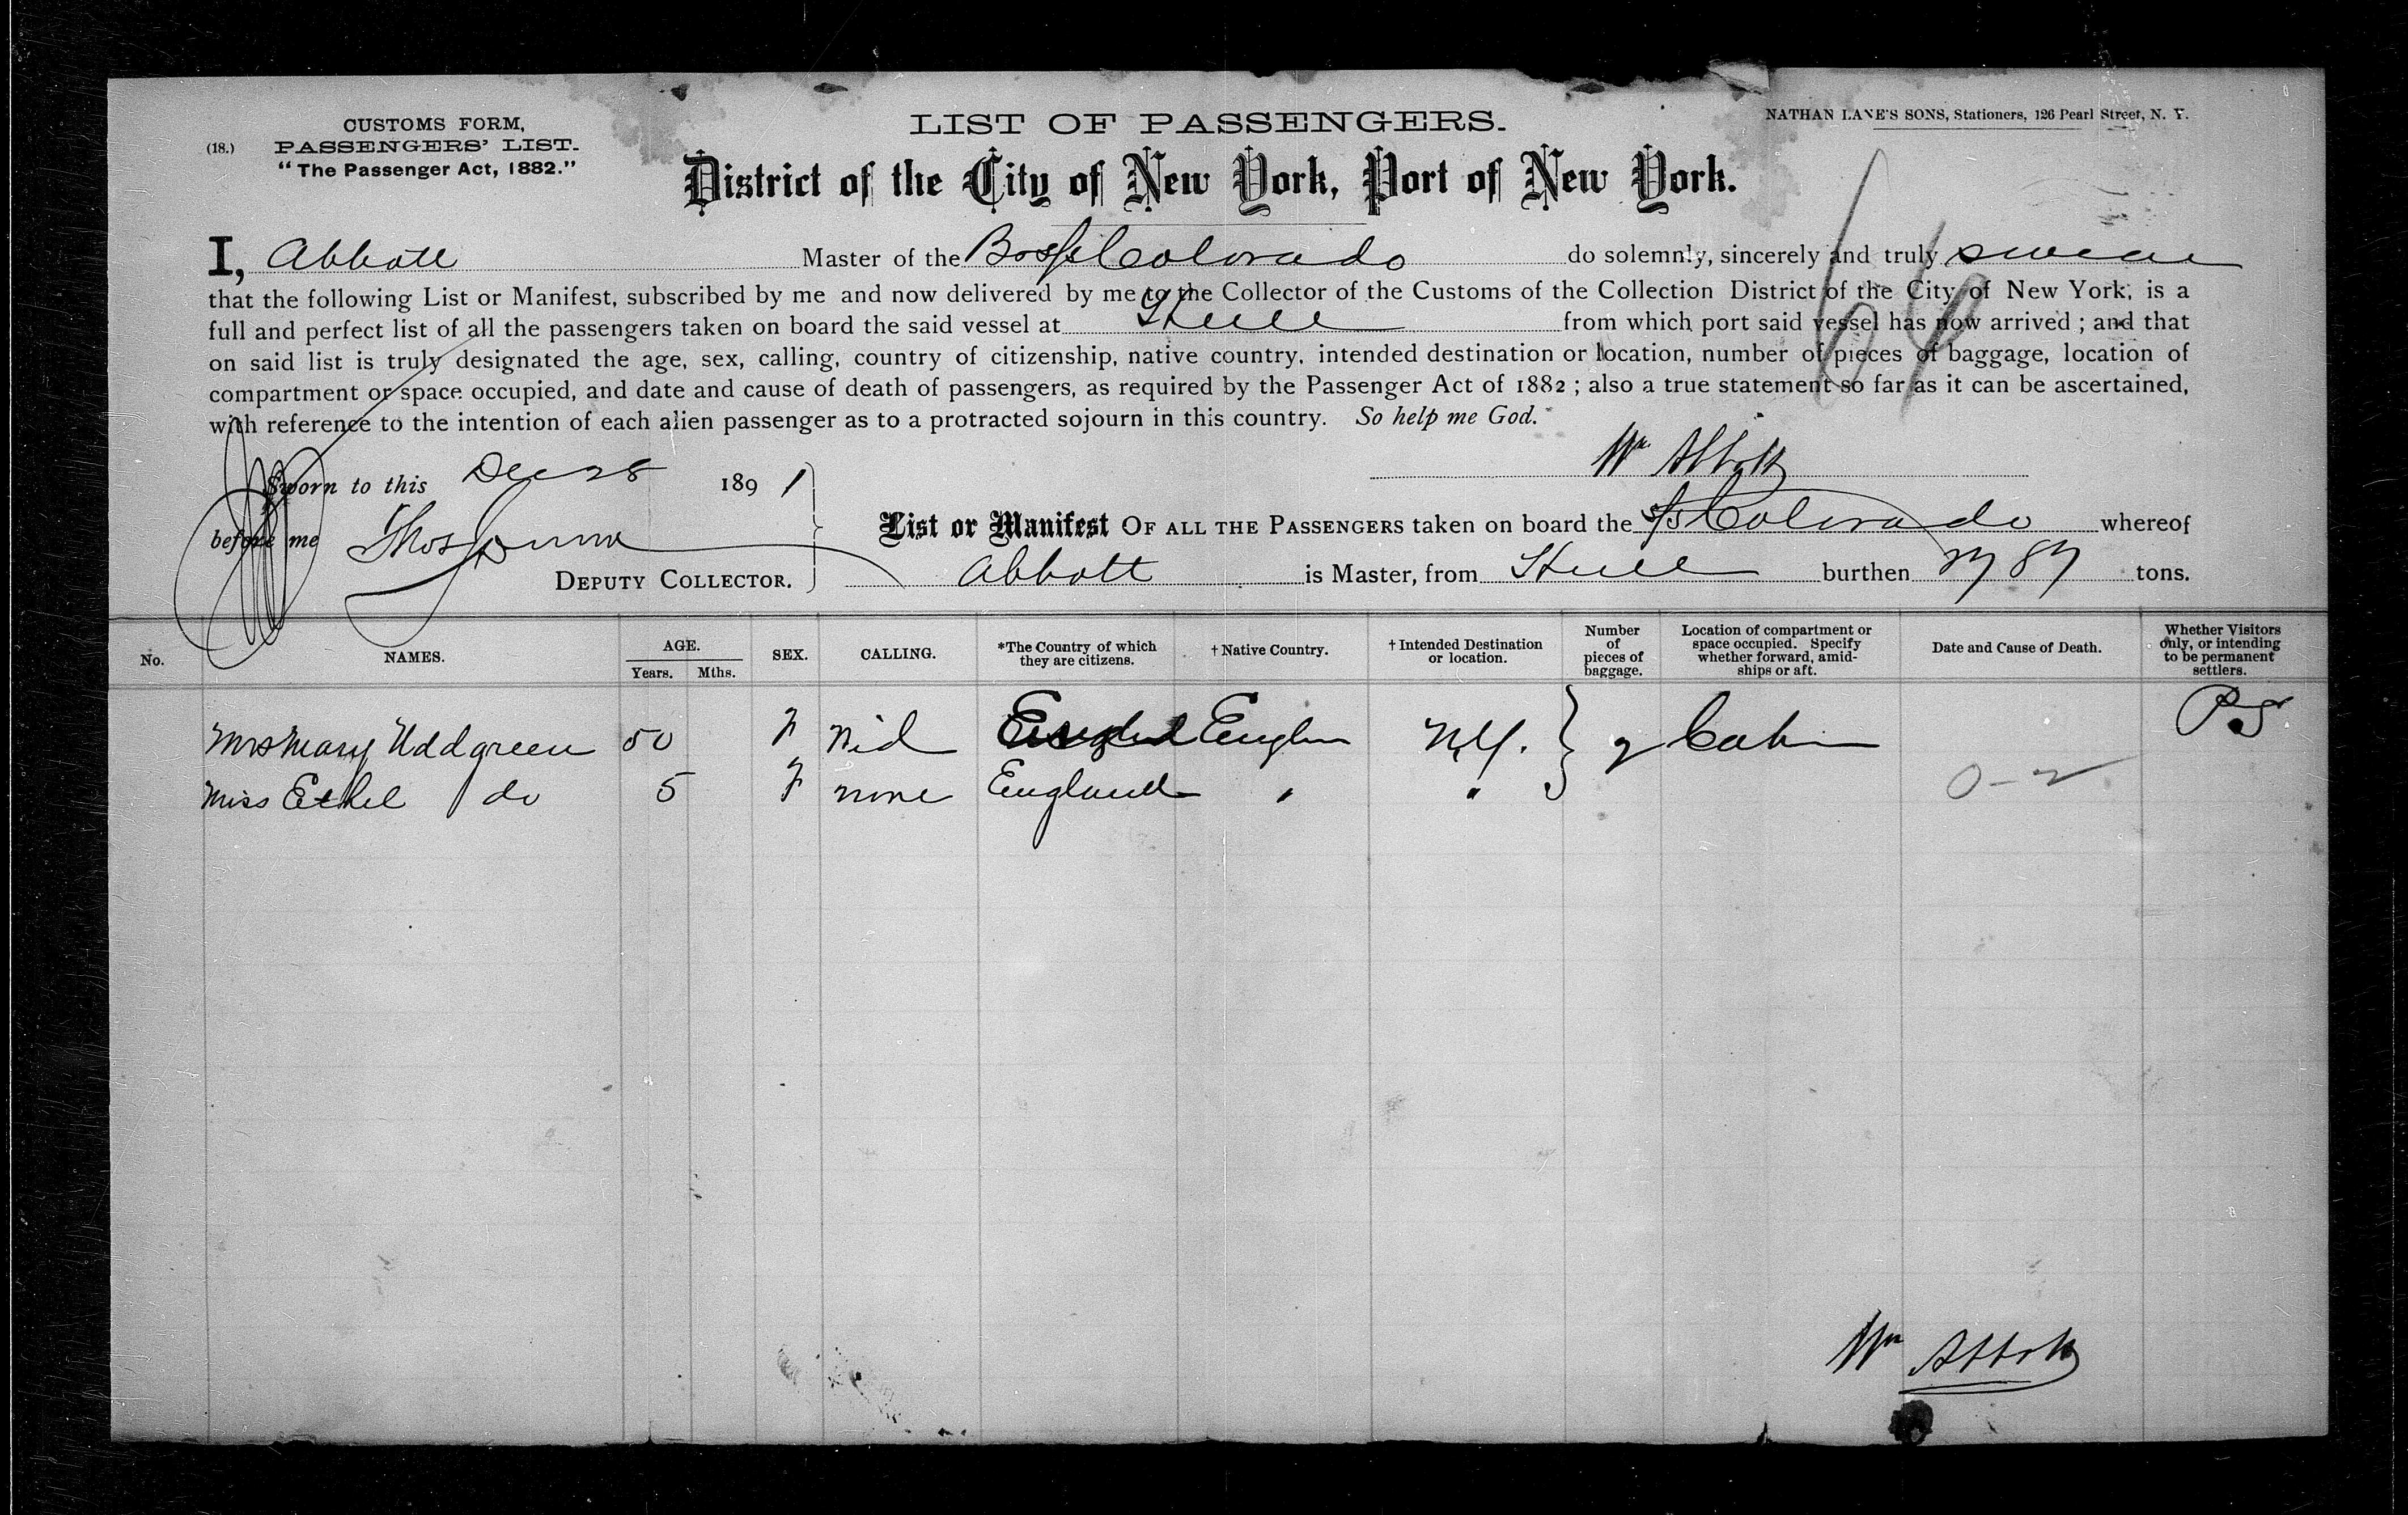 (18.)
CUSTOMS FORM,
PASSENGERS' LIST.
"The Passenger Act, 1882."
LIST OF PASSENGERS.
NATHAN LANE'S SONS, Stationers, 126 Pearl Street, N. Y.
District of the City of New York, Port of New York.
64
I, Abbott Master of the Br SS Colorado do solemnly, sincerely and truly swear
that the following List or Manifest, subscribed by me and now delivered by me to the Collector of the Customs of the Collection District of the City of New York, is a
full and perfect list of all the passengers taken on board the said vessel at Hull from which port said vessel has now arrived; and that
on said list is truly designated the age, sex, calling, country of citizenship, native country, intended destination or location, number of pieces of baggage, location of
compartment or space occupied, and date and cause of death of passengers, as required by the Passenger Act of 1882; also a true statement so far as it can be ascertained,
with reference to the intention of each alien passenger as to a protracted sojourn in this country. So help me God.
Wm Abbott
Sworn to this Dec 28 1891
before me Thos
DEPUTY COLLECTOR.
List or Manifest OF ALL THE PASSENGERS taken on board the S/S Colorado whereof
Abbott is Master, from Hull burthen 2787 tons.
No. NAMES. AGE. Years. Mths. SEX. CALLING. *The Country of which they are citizens. †Native Country. †Intended Destination or location. Number of pieces of baggage. Location of compartment or space occupied. Specify whether forward, amidships or aft. Date and Cause of Death. Whether Visitors only, or intending to be permanent settlers.
Mrs Mary Uddgreen 50 F Englan N.Y. 2 Cabin PS
Miss Ethel do 5 F none England " "
0-2
Wm Abbott